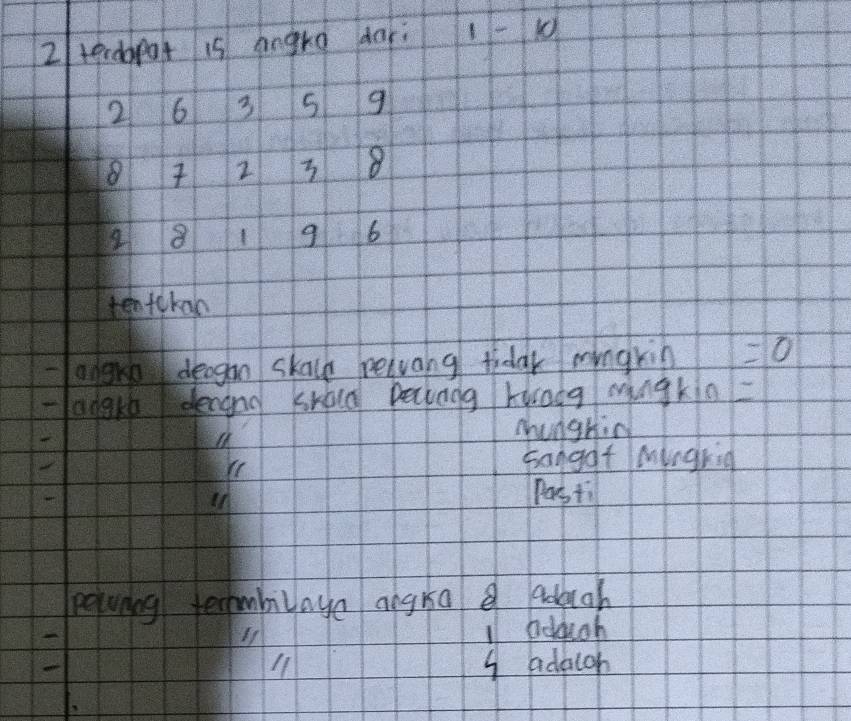 2 terdapat 15 angka dari 1 - 10
2 6 3 5 9
8 7 2 3 8
2 8 1 9 6
tentukan
- angka dengan skala peluang tidak mungkin = 0
- angka dengan skala peluang kurang mungkin =
- " mungkin
- " sangat mungkin
- " Pasti
peluang terambilnya angka 8 adalah
- " 1 adalah
- " 4 adalah